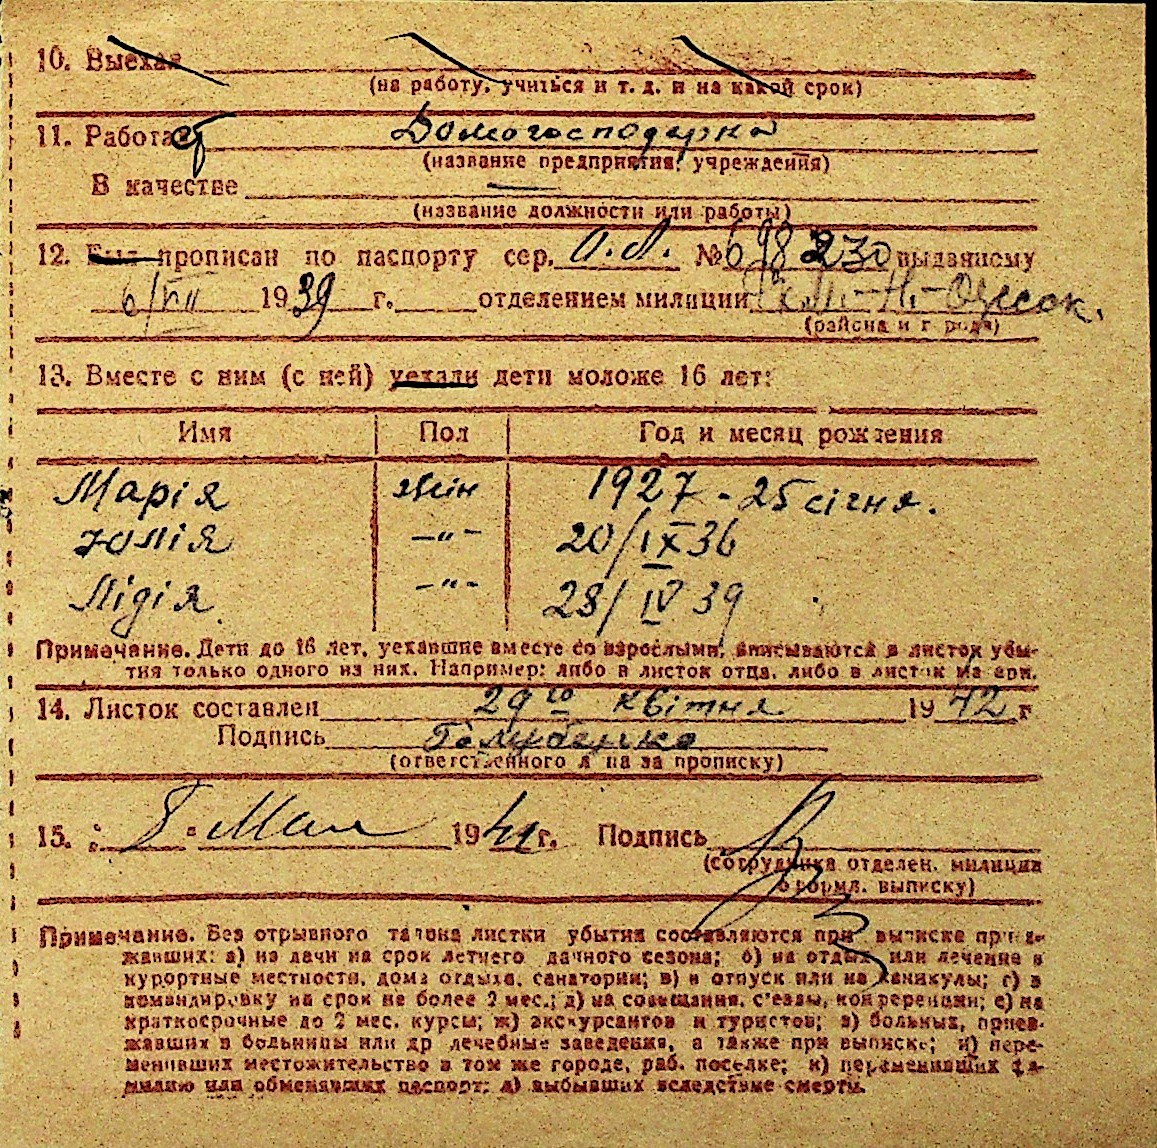 10. Выехал
(на работу, учиться и т. д. и на какой срок)
11. Работает Домогосподарка
(название предприятия, учреждения)
В качестве —
(название должности или работы)
12. Был прописан по паспорту сер. № 698230 выданному
6/VII 1939 г. отделением милиции
(района и города)
13. Вместе с ним (с ней) уехали дети моложе 16 лет:
Имя Пол Год и месяц рождения
Марія жін 1927 - 25 січня.
Юлія -"- 20/IX 36
Лідія -"- 28/IV 39
Примечание. Дети до 16 лет, уехавшие вместе со взрослыми, вписываются в листок убы-
тия только одного из них. Например: либо в листок отца, либо в листок матери.
14. Листок составлен 29го квітня 1942 г
Подпись Голубенко
(ответственного лица за прописку)
15. " 8 " Мая 1941 г. Подпись
(сотрудника отделен. милиции
оформл. выписку)
Примечание. Без отрывного талона листки убытия составляются при выписке приез-
жавших: а) на дачи на срок летнего дачного сезона; б) на отдых или лечение в
курортные местности, дома отдыха, санатории; в) в отпуск или на каникулы; г) в
командировку на срок не более 2 мес.; д) на совещания, с'езды, конференции; е) на
краткосрочные до 2 мес. курсы; ж) экскурсантов и туристов; з) больных, приез-
жавших в больницы или др лечебные заведения, а также при выписке; и) пере-
менивших местожительство в том же городе, раб. поселке; к) переменивших фа-
милию или обменявших паспорт; л) выбывших вследствие смерти.